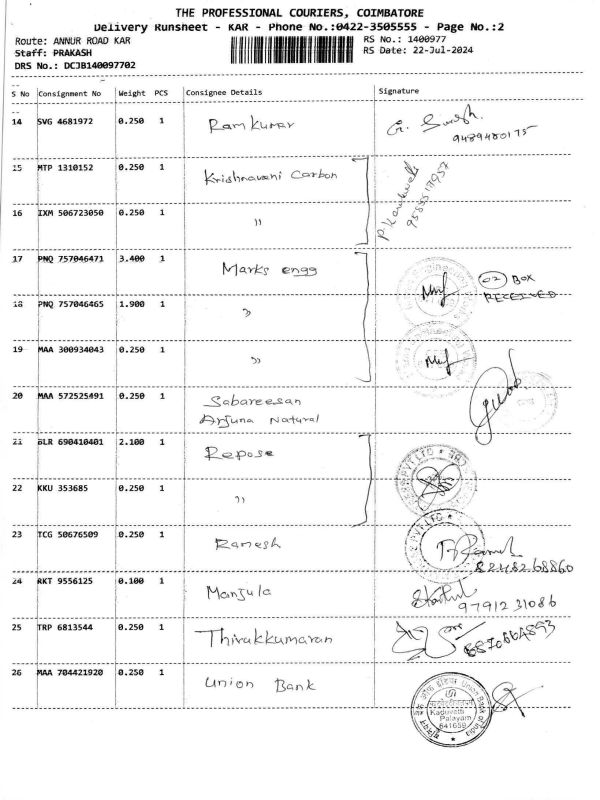 THE PROFESSIONAL COURIERS, COIMBATORE
Delivery Runsheet - KAR - Phone No.:0422-3505555 - Page No.:2
Route: ANNUR ROAD KAR
Staff: PRAKASH
DRS No.: DCJB140097702
RS No.: 1400977
RS Date: 22-Jul-2024
S No Consignment No Weight PCS Consignee Details Signature
14 SVG 4681972 0.250 1 Ramkumar
9489480175
15 MTP 1310152 0.250 1 Krishnaveni Carbon
9585517957
16 IXM 506723050 0.250 1 "
17 PNQ 757046471 3.400 1 Marks engg 02 BOX
RECEIVED
18 PNQ 757046465 1.900 1 "
19 MAA 300934043 0.250 1 "
20 MAA 572525491 0.250 1 Sabareesan
Arjuna Natural
21 BLR 690410401 2.100 1 Repose
22 KKU 353685 0.250 1 "
23 TCG 50676509 0.250 1 Ramesh
82482 68860
24 RKT 9556125 0.100 1 Manjula
97912 31086
25 TRP 6813544 0.250 1 Thirukkumaran
6870664893
26 MAA 704421920 0.250 1 Union Bank
Union Bank of India
Kaduvetti
Palayam
641659